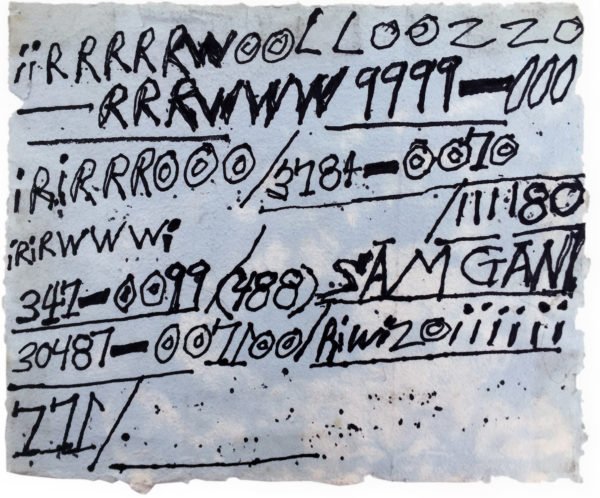 iiRRRRRWOOLLOOZZO
—RRRWWWW9999-000
iRiRRROOO/3784-0070
iRiRWWWi /111180
347-0099/(488) SAM GANI
30487-007100/RiWiZOiiiiii
771/